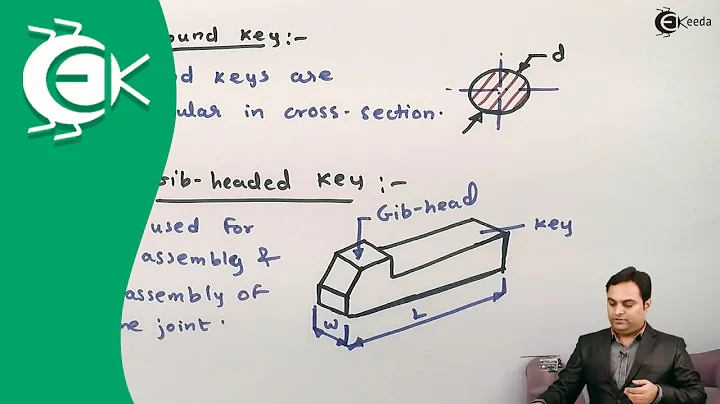 ound key:-
d keys are
ular in cross-section.
d
ib-headed key:-
used for
assembly &
assembly of
joint.
Gib-head
key
W
L
EK
Ekeeda